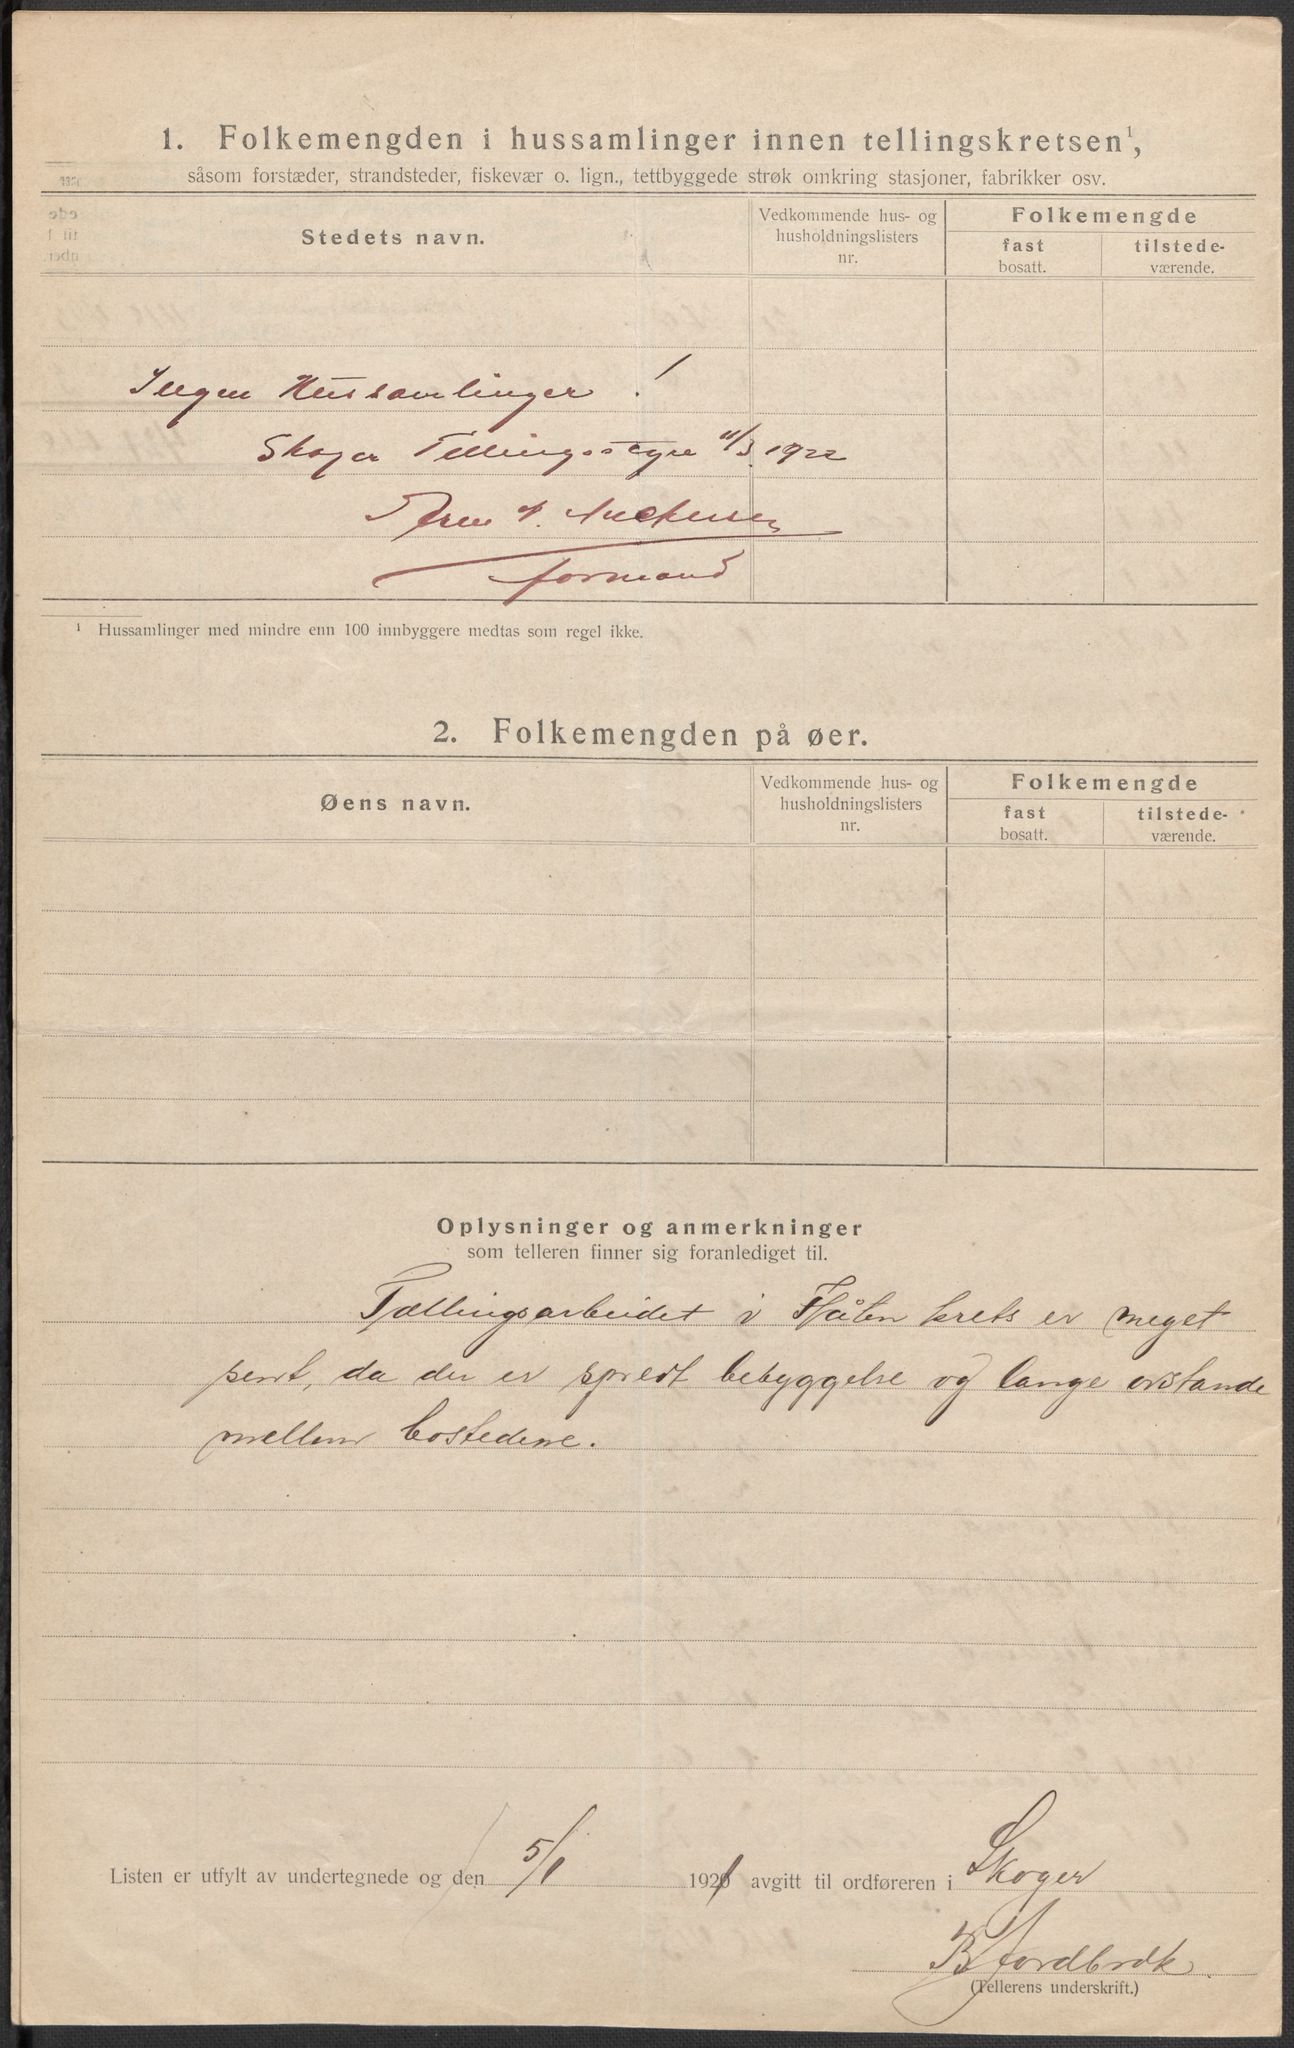 1. Folkemengden i hussamlinger innen tellingskretsen¹,
såsom forstæder, strandsteder, fiskevær o. lign., tettbyggede strøk omkring stasjoner, fabrikker osv.
Stedets navn.
Vedkommende hus- og
husholdningslisters
nr.
Folkemengde
fast
bosatt.
tilstede-
værende.
Ingen Hussamlinger !
Skoger Tellingsstyre 11/3 1922
formand
¹ Hussamlinger med mindre enn 100 innbyggere medtas som regel ikke.
2. Folkemengden på øer.
Øens navn.
Vedkommende hus- og
husholdningslisters
nr.
Folkemengde
fast
bosatt.
tilstede-
værende.
Oplysninger og anmerkninger
som telleren finner sig foranlediget til.
Tællingsarbeidet i krets er meget
sent, da der er spredt bebyggelse og lange avstande
mellem bostedene.
Listen er utfylt av undertegnede og den 5/1 1921 avgitt til ordføreren i Skoger
B Jordbræk
(Tellerens underskrift.)